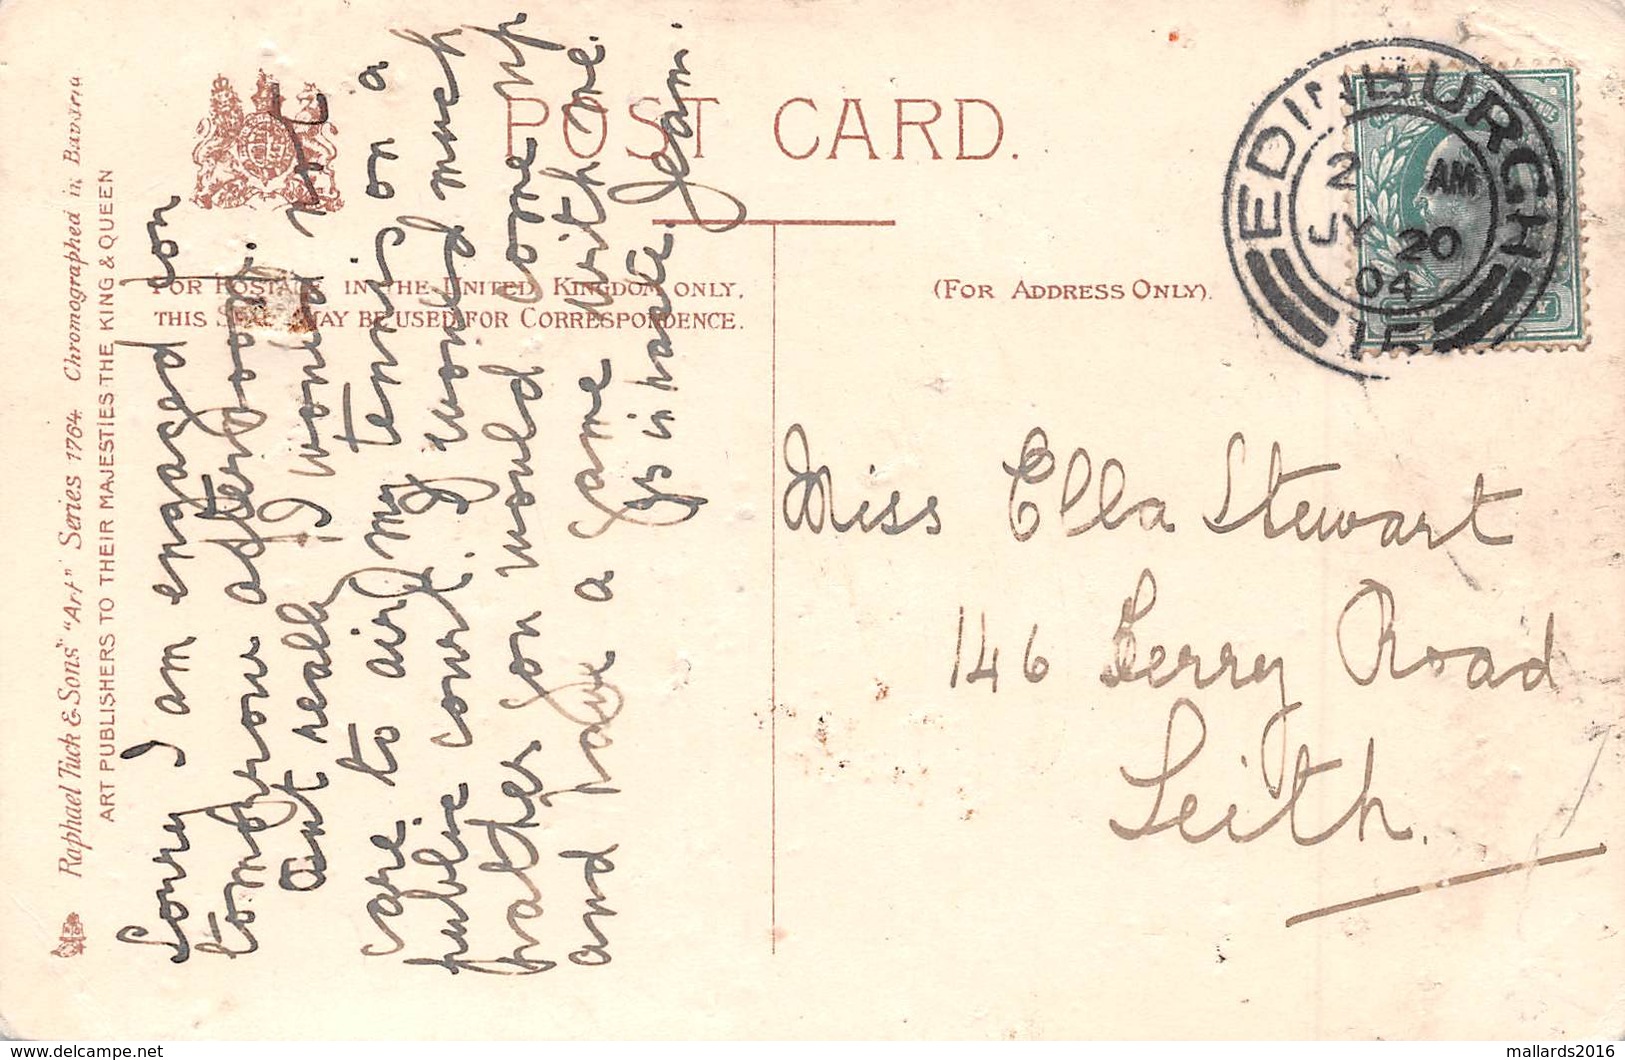 POST CARD.
FOR POSTAGE IN THE UNITED KINGDOM ONLY,
THIS SPACE MAY BE USED FOR CORRESPONDENCE.
(FOR ADDRESS ONLY).
Raphael Tuck & Sons' "Art" Series 1764. Chromographed in Bavaria
ART PUBLISHERS TO THEIR MAJESTIES THE KING & QUEEN
Sorry I am engaged for
tomorrow afternoon.
And really I would not
care to air my tennis on a
public court. I would much
rather you would come up
and have a game with me.
Yrs in haste. Jean.
EDINBURGH
2 AM
JY 20
04
Miss Ella Stewart
146 Ferry Road
Leith.
mallards2016